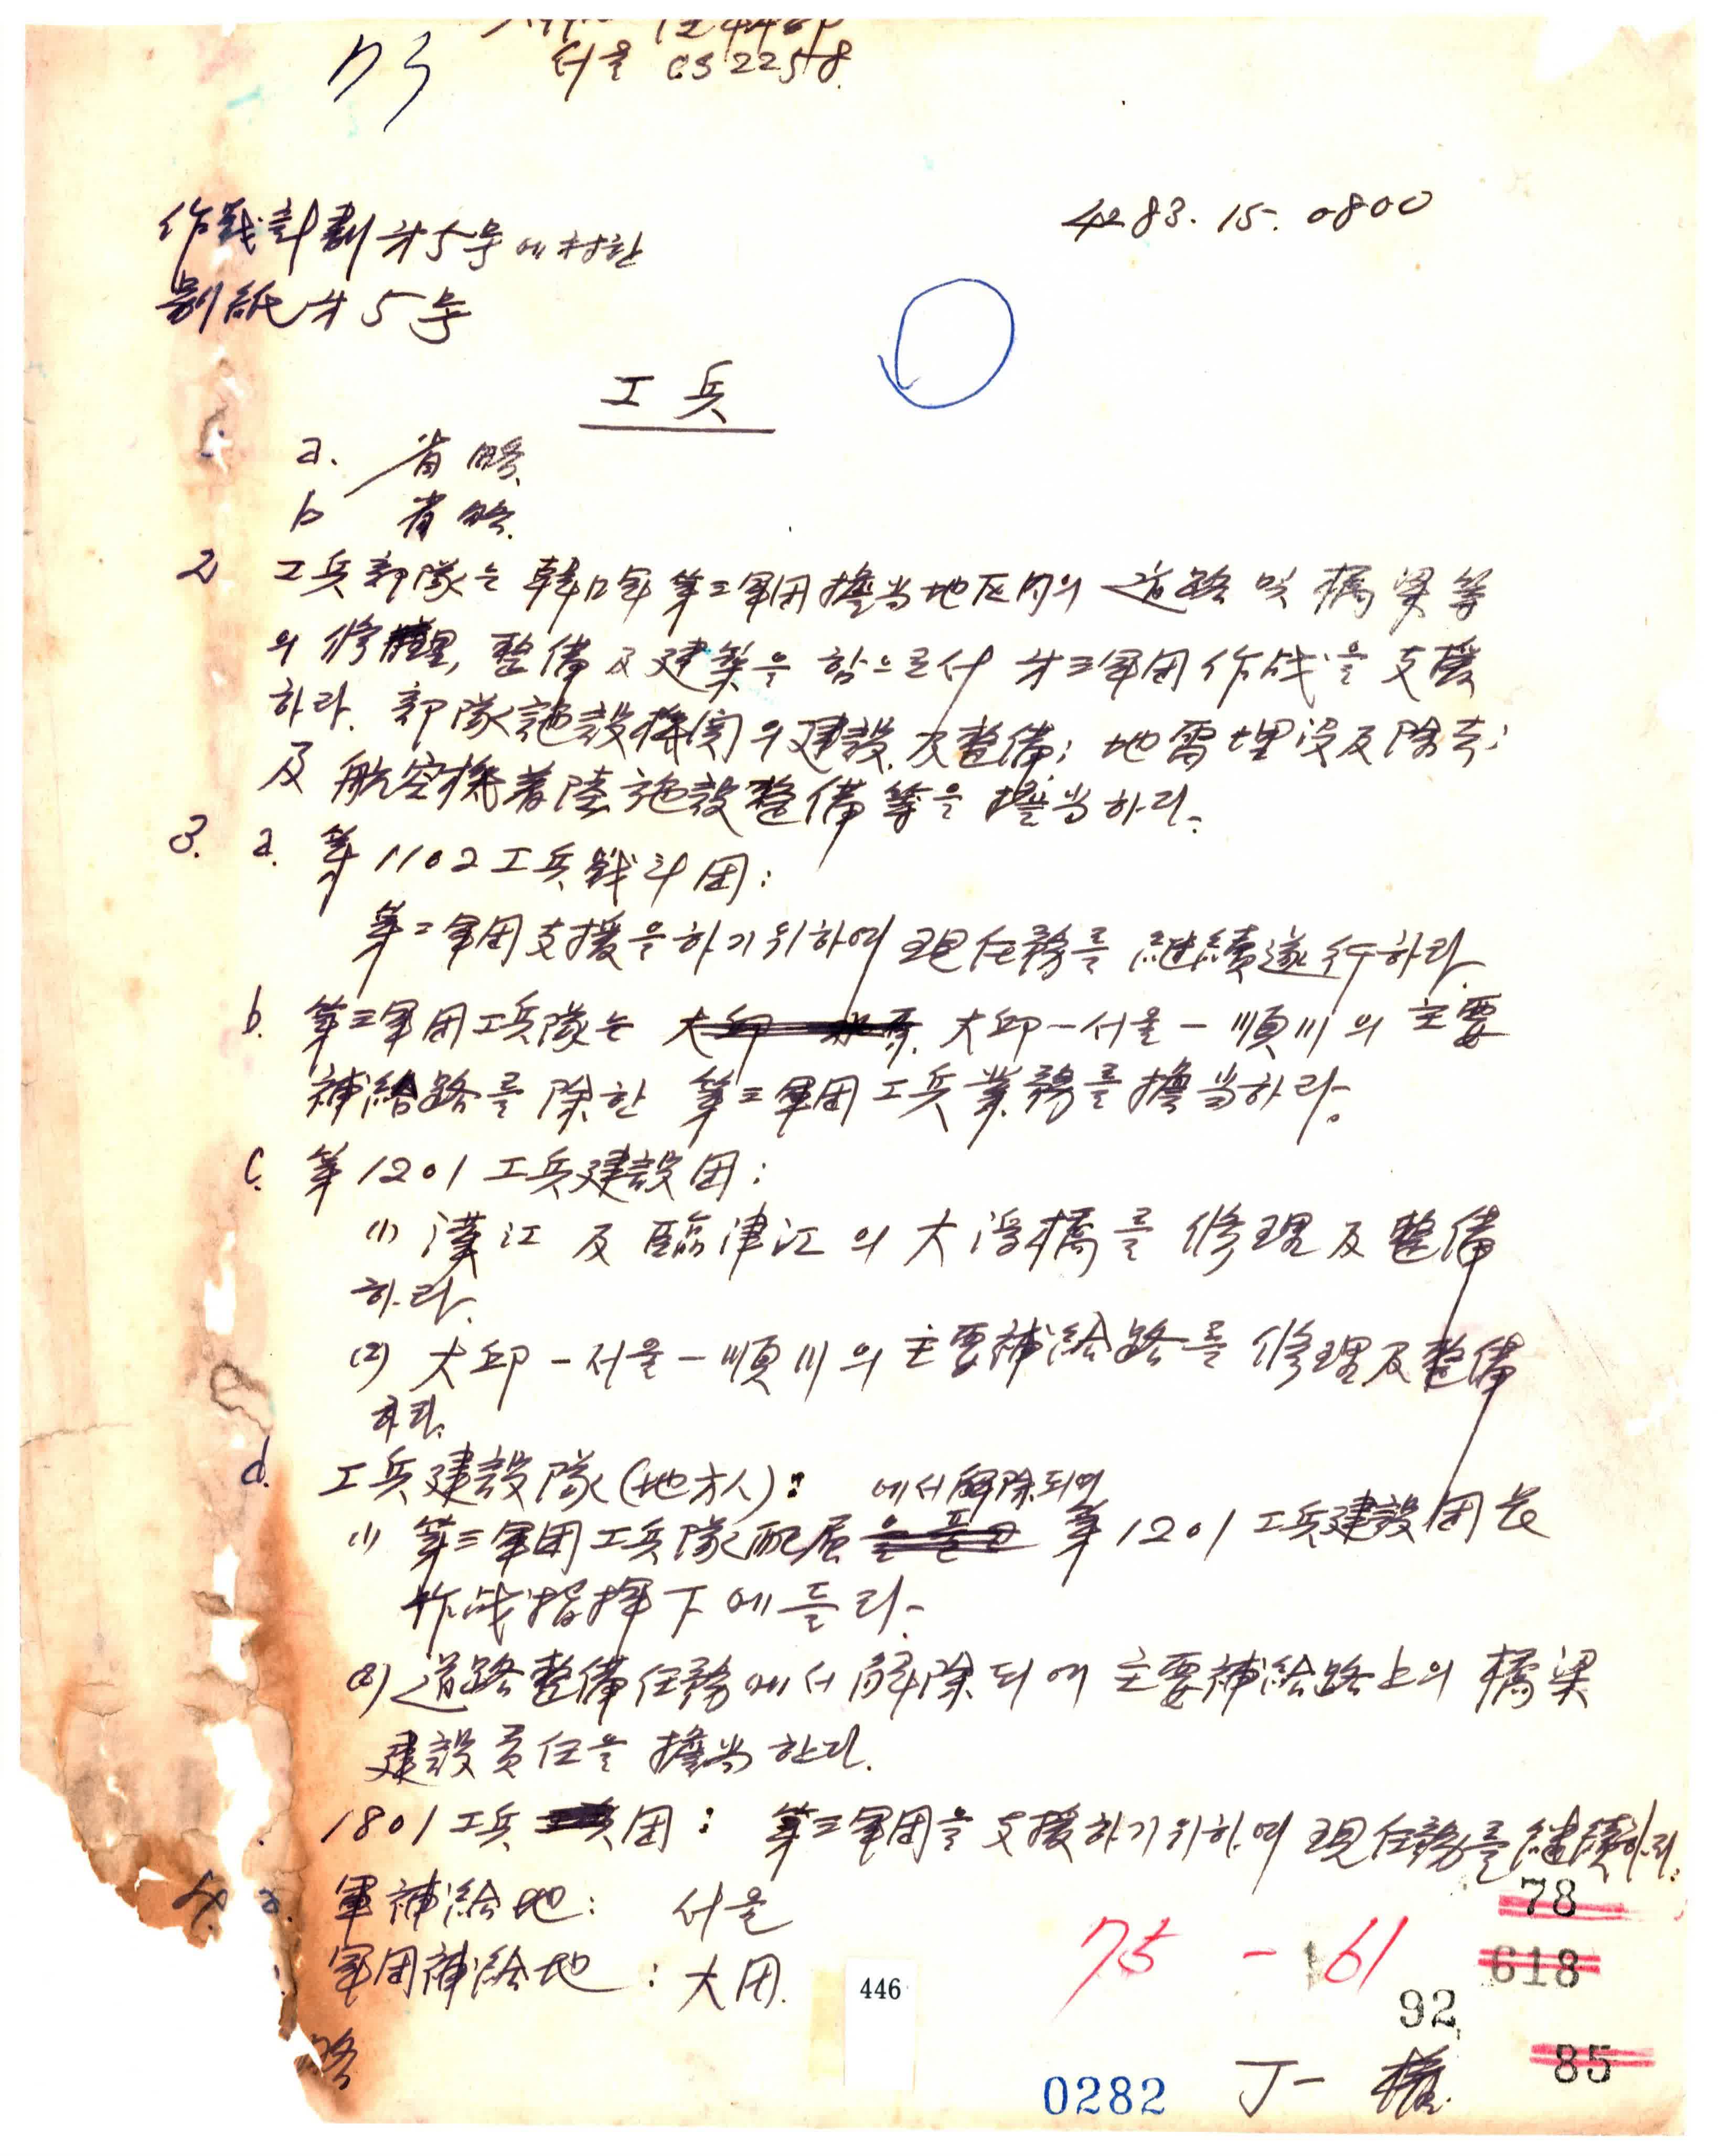 서울 CS 2258.
作战計劃 第5号에対한
4283. 15. 0800
別紙 第5号
工兵
a. 省略
b 省略
2 工兵部隊는 韓国軍 第三軍団 擔当地区内의 道路 및 橋梁等
의 修理, 整備 及 建築을 함으로서 第三軍団 作战을 支援
하라. 部隊施設機関의 建設 及 整備; 地雷埋没及除去;
及 航空機着陸施設整備 等을 擔当하라.
3. a. 第1102工兵戦斗団:
第二軍団支援을하기위하여 現任務를 継續遂行하라
b. 第三軍団工兵隊는 大邱-서울-順川의 主要
補給路를 除한 第三軍団工兵業務를 擔当하라.
C. 第1201工兵建設団:
(1) 漢江 及 臨津江의 大浮橋를 修理及整備
하라.
(2) 大邱-서울-順川의 主要補給路를 修理及整備
하라.
d. 工兵建設隊(地方人):
에서解除되여
(1) 第三軍団工兵隊配属 第1201工兵建設団長
作战指揮下에들라.
(2) 道路整備任務에서 解除되여 主要補給路上의 橋梁
建設責任을 擔当한다.
1801工兵団: 第三軍団을 支援하기위하여 現任務를 継續하라.
4. a. 軍補給地: 서울
軍団補給地: 大田.
略
75 - 61
78
618
92
85
446
0282
丁一權